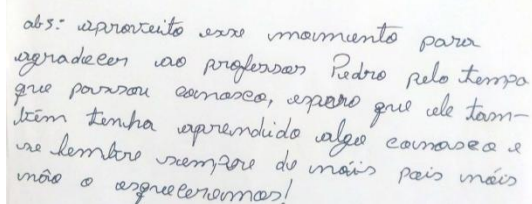 obs: aproveito esse momento para
agradecer ao professor Pedro pelo tempo
que passou conosco, espero que ele tam-
bém tenha aprendido algo conosco e
se lembre sempre de nóis pois nóis
não o esqueceremos!